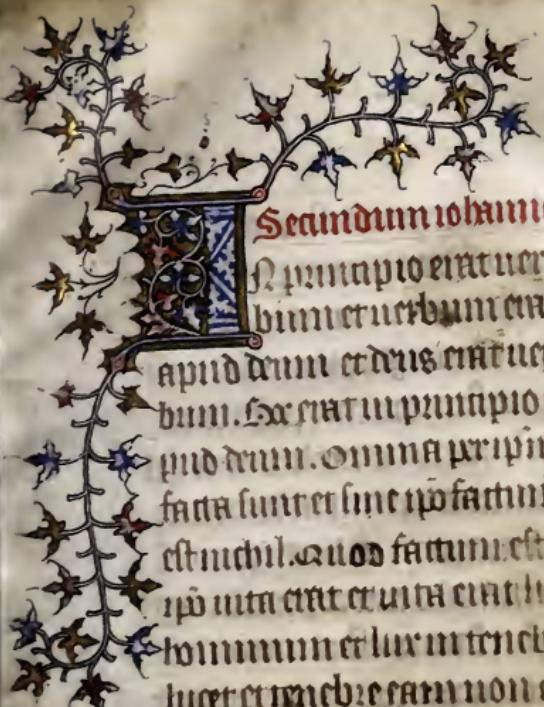 Secundum iohann
IN principio erat uer
bum et uerbum era
apud deum et deus erat uer
bum. Hoc erat in principio
pud deum. Omnia per ip̄m
facta sunt et sine ip̄o factum
est nichil. Quod factum est
ip̄o uita erat et uita erat l
hominum et lux in teneb
lucet et tenebre eam non